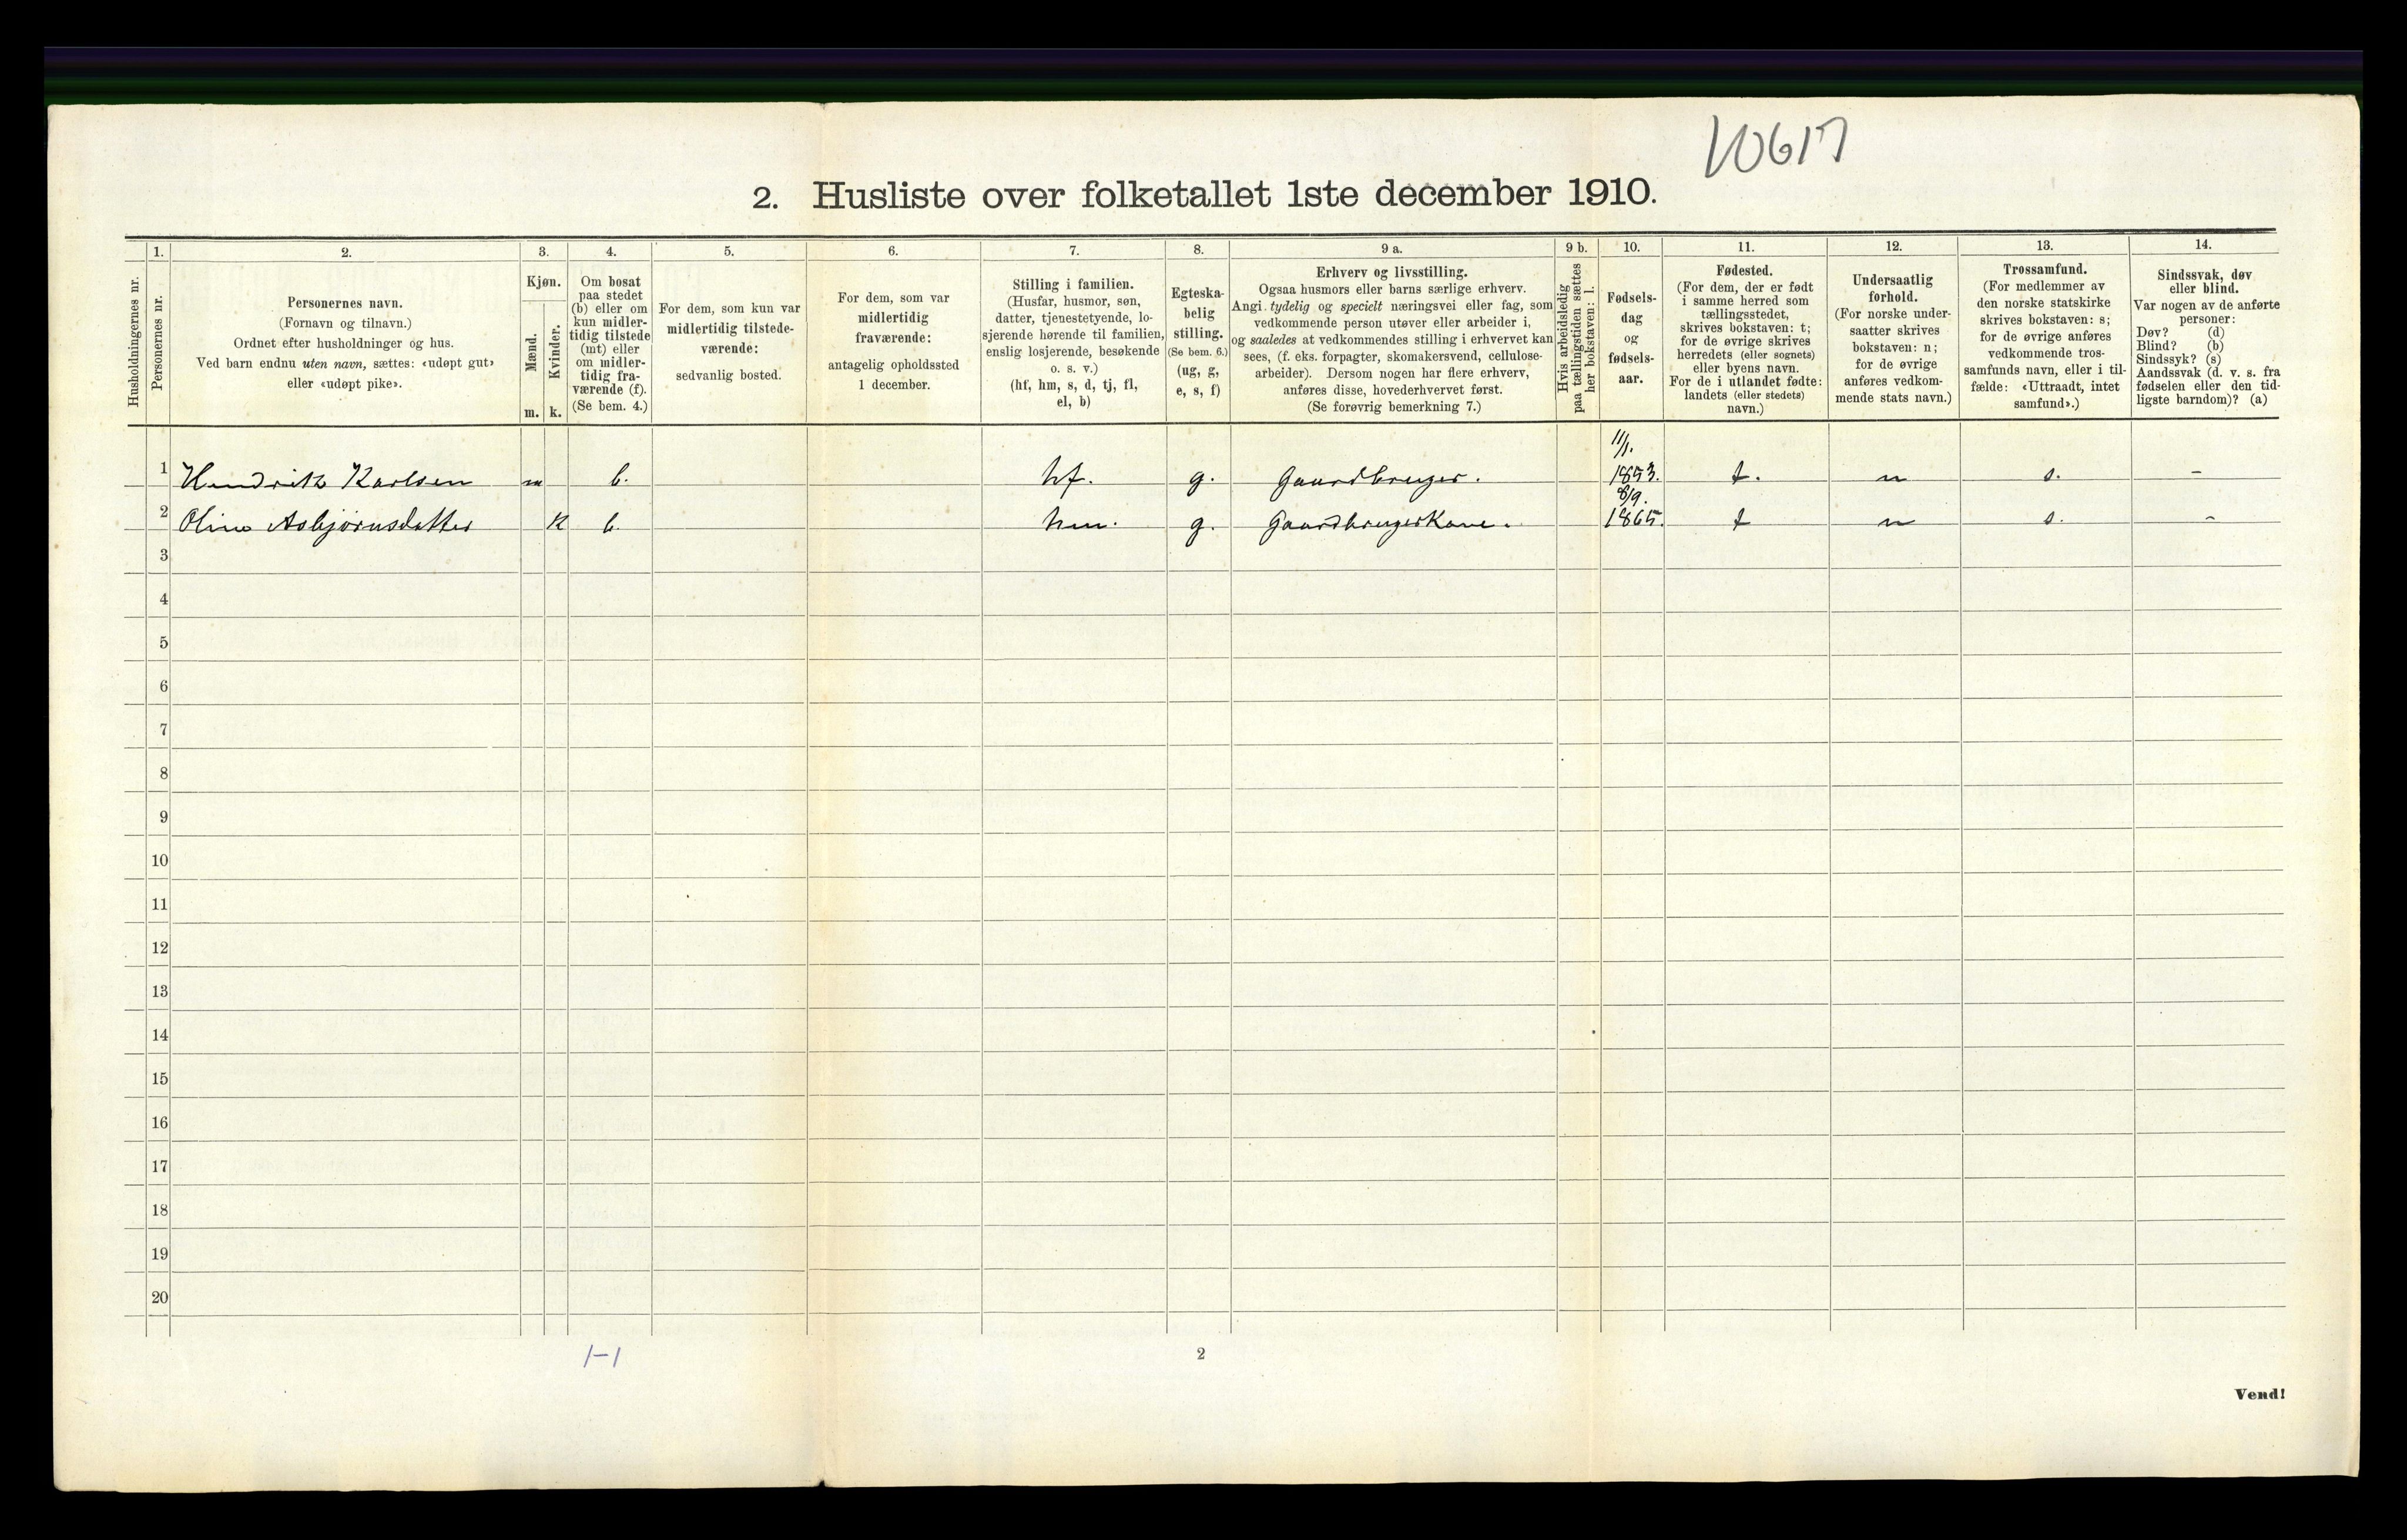 10617
2. Husliste over folketallet 1ste december 1910.
Husholdningernes nr.
1.
Personernes nr.
2.
Personernes navn.
(Fornavn og tilnavn.)
Ordnet efter husholdninger og hus.
Ved barn endnu uten navn, sættes: «udøpt gut»
eller «udøpt pike».
3.
Kjøn.
Mænd.
m.
Kvinder.
k.
4.
Om bosat
paa stedet
(b) eller om
kun midler-
tidig tilstede
(mt) eller
om midler-
tidig fra-
værende (f).
(Se bem. 4.)
5.
For dem, som kun var
midlertidig tilstede-
værende:
sedvanlig bosted.
6.
For dem, som var
midlertidig
fraværende:
antagelig opholdssted
1 december.
7.
Stilling i familien.
(Husfar, husmor, søn,
datter, tjenestetyende, lo-
sjerende hørende til familien,
enslig losjerende, besøkende
o. s. v.)
(hf, hm, s, d, tj, fl,
el, b)
8.
Egteska-
belig
stilling.
(Se bem. 6.)
(ug, g,
e, s, f)
9 a.
Erhverv og livsstilling.
Ogsaa husmors eller barns særlige erhverv.
Angi tydelig og specielt næringsvei eller fag, som
vedkommende person utøver eller arbeider i,
og saaledes at vedkommendes stilling i erhvervet kan
sees, (f. eks. forpagter, skomakersvend, cellulose-
arbeider). Dersom nogen har flere erhverv,
anføres disse, hovederhvervet først.
(Se forøvrig bemerkning 7.)
9 b.
Hvis arbeidsledig
paa tællingstiden sættes
her bokstaven: l.
10.
Fødsels-
dag
og
fødsels-
aar.
11.
Fødested.
(For dem, der er født
i samme herred som
tællingsstedet,
skrives bokstaven: t;
for de øvrige skrives
herredets (eller sognets)
eller byens navn.
For de i utlandet fødte:
landets (eller stedets)
navn.)
12.
Undersaatlig
forhold.
(For norske under-
saatter skrives
bokstaven: n;
for de øvrige
anføres vedkom-
mende stats navn.)
13.
Trossamfund.
(For medlemmer av
den norske statskirke
skrives bokstaven: s;
for de øvrige anføres
vedkommende tros-
samfunds navn, eller i til-
fælde: «Uttraadt, intet
samfund».)
14.
Sindssvak, døv
eller blind.
Var nogen av de anførte
personer:
Døv? (d)
Blind? (b)
Sindssyk? (s)
Aandssvak (d. v. s. fra
fødselen eller den tid-
ligste barndom)? (a)
1 Hendrik Karlsen m b. hf. g. Gaardbruger. 11/1. 1853. t. n s. -
2 Oline Asbjørnsdatter k b. hm. g. Gaardbrugerkone. 8/9. 1865. t n s. -
3
4
5
6
7
8
9
10
11
12
13
14
15
16
17
18
19
20
1-1
2
Vend!